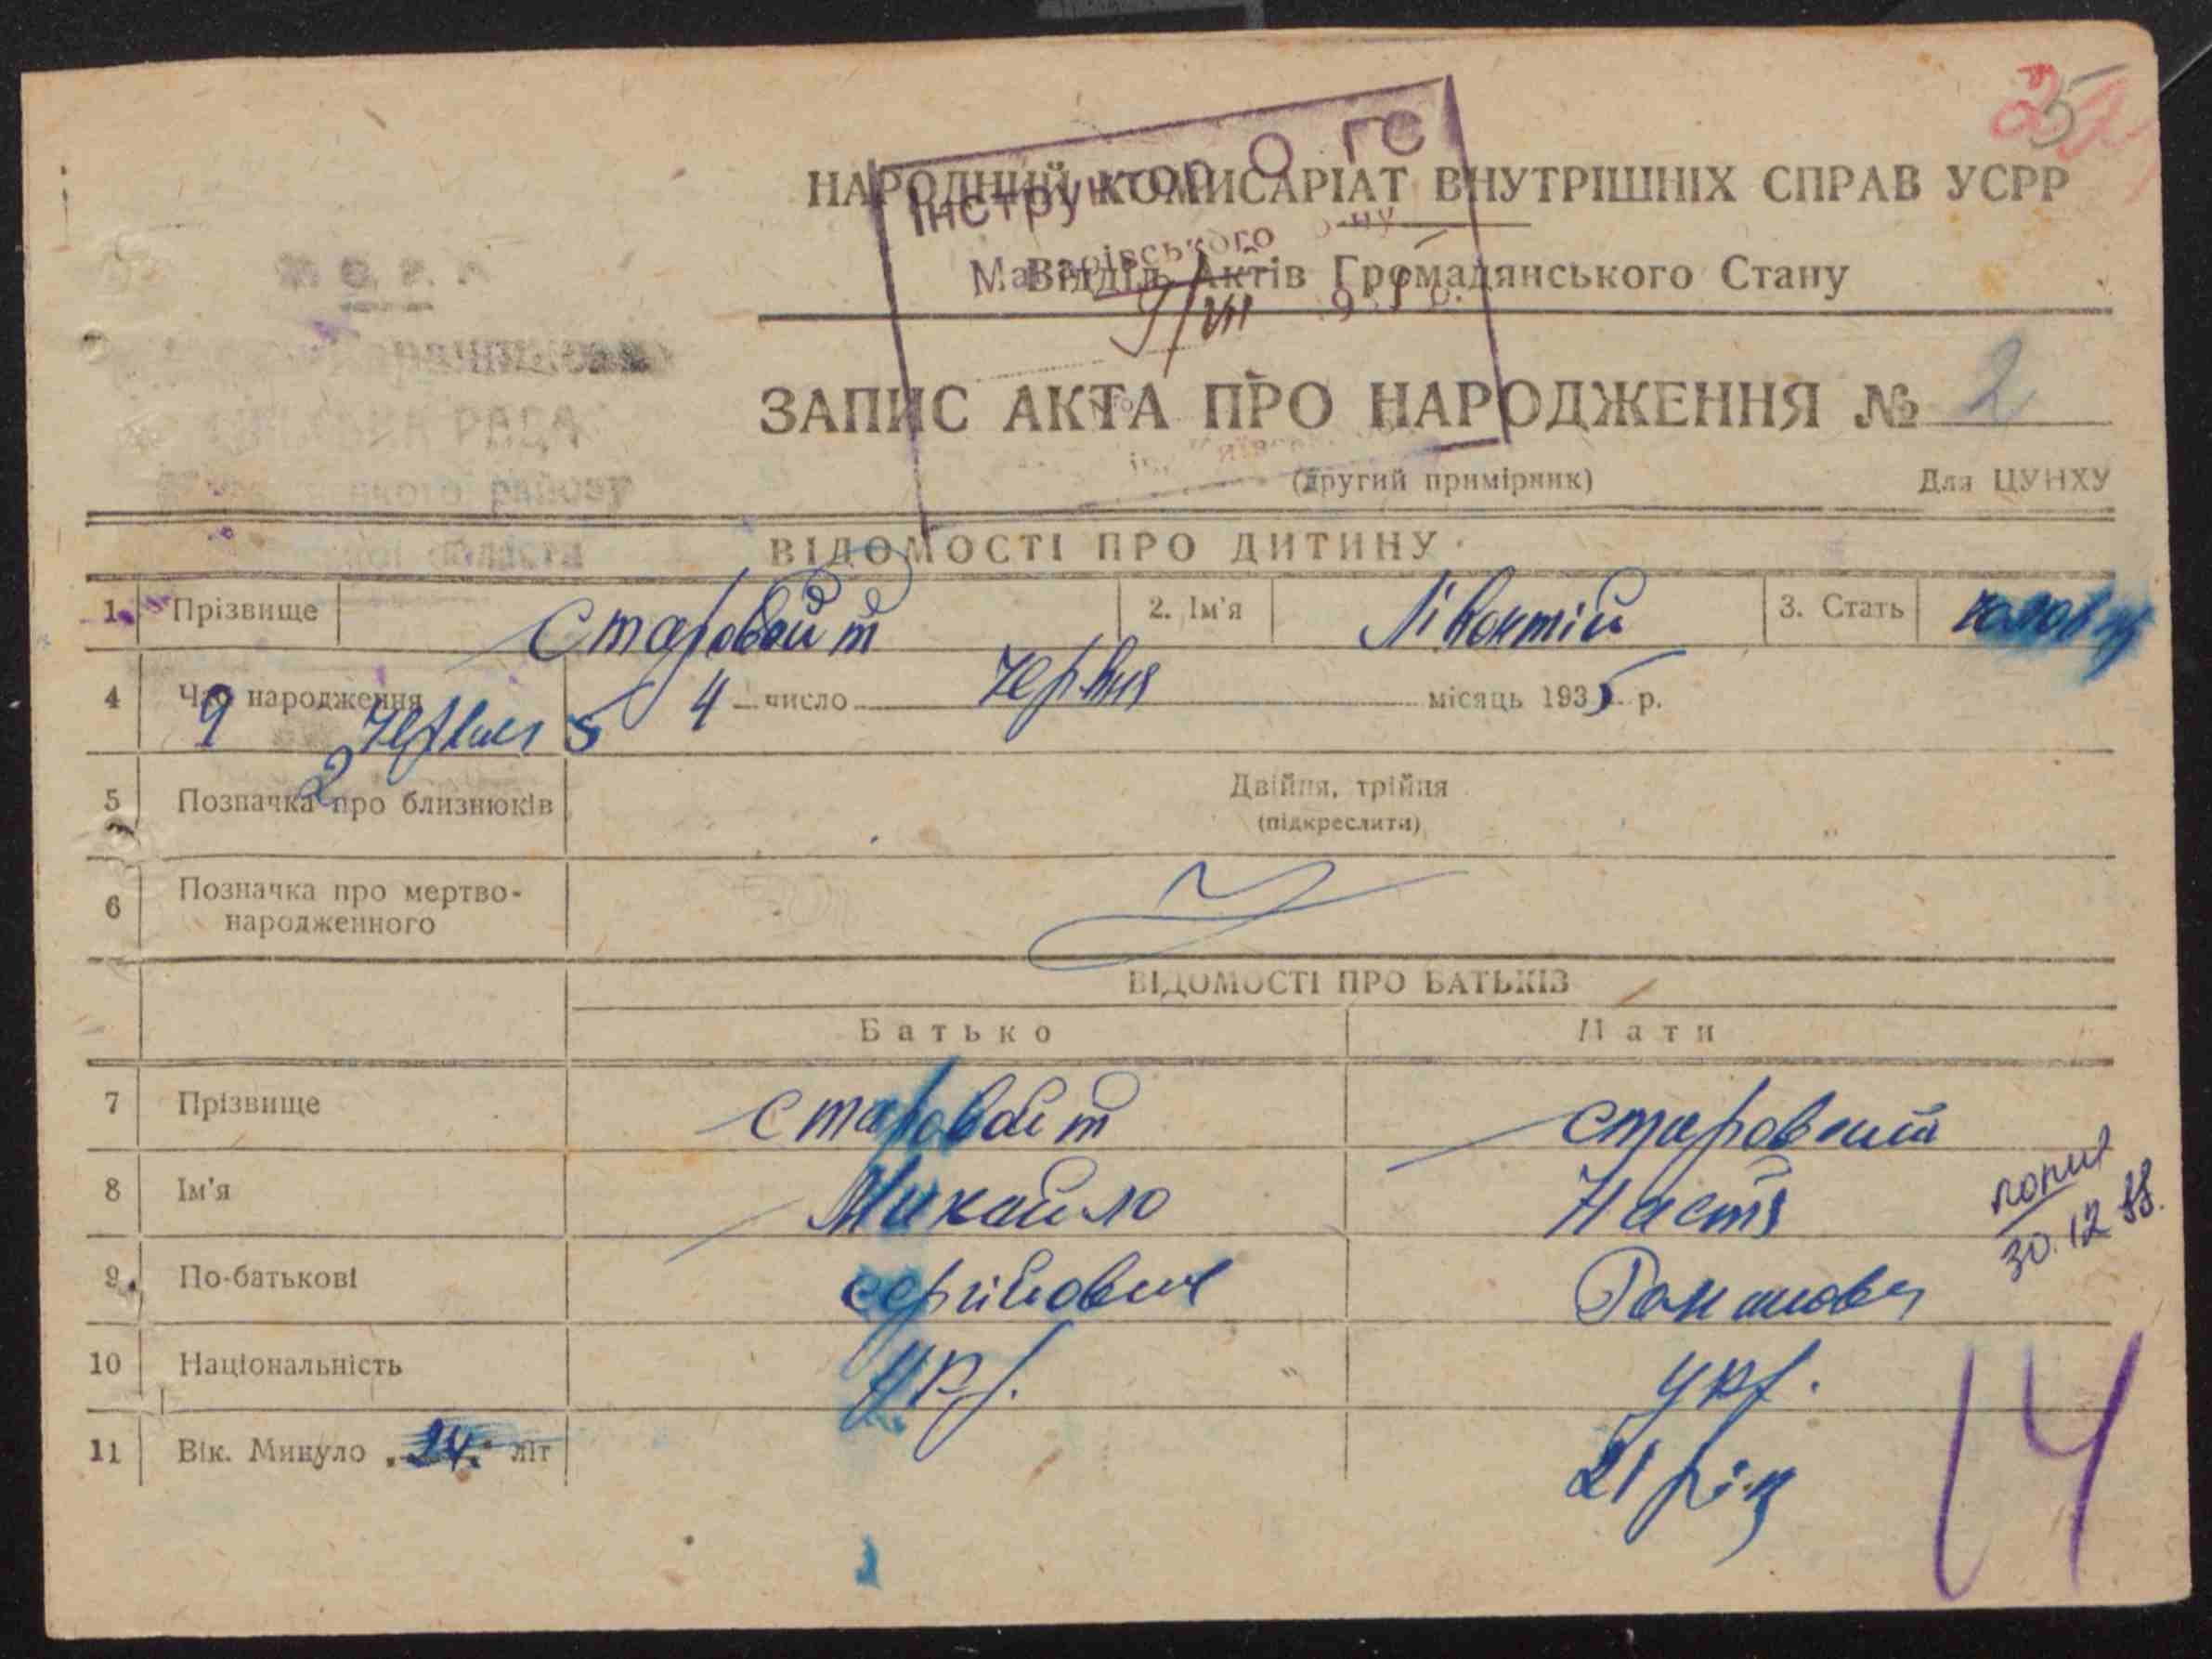 Інструктор О ГС
НАРОДНИЙ КОМИСАРІАТ ВНУТРІШНІХ СПРАВ УСРР
Відділ Актів Громадянського Стану
9/VII
ЗАПИС АКТА ПРО НАРОДЖЕННЯ № 2
РАДА
(другий примірник) Для ЦУНХУ
району
області
ВІДОМОСТІ ПРО ДИТИНУ
1. Прізвище Старовойт 2. Ім'я 3. Стать
4 Час народження 4 число червня місяць 1935 р.
9 червня 5
2
5 Позначка про близнюків Двійня, трійня
(підкреслити)
6 Позначка про мертво-
народженного
ВІДОМОСТІ ПРО БАТЬКІВ
Батько Мати
7 Прізвище Старовойт Старовойт
8 Ім'я Михайло Настя
9. По-батькові Романовн
10 Національність Укр. укр.
11 Вік. Минуло 24 літ 21 рік
копия
30.12 88.
14